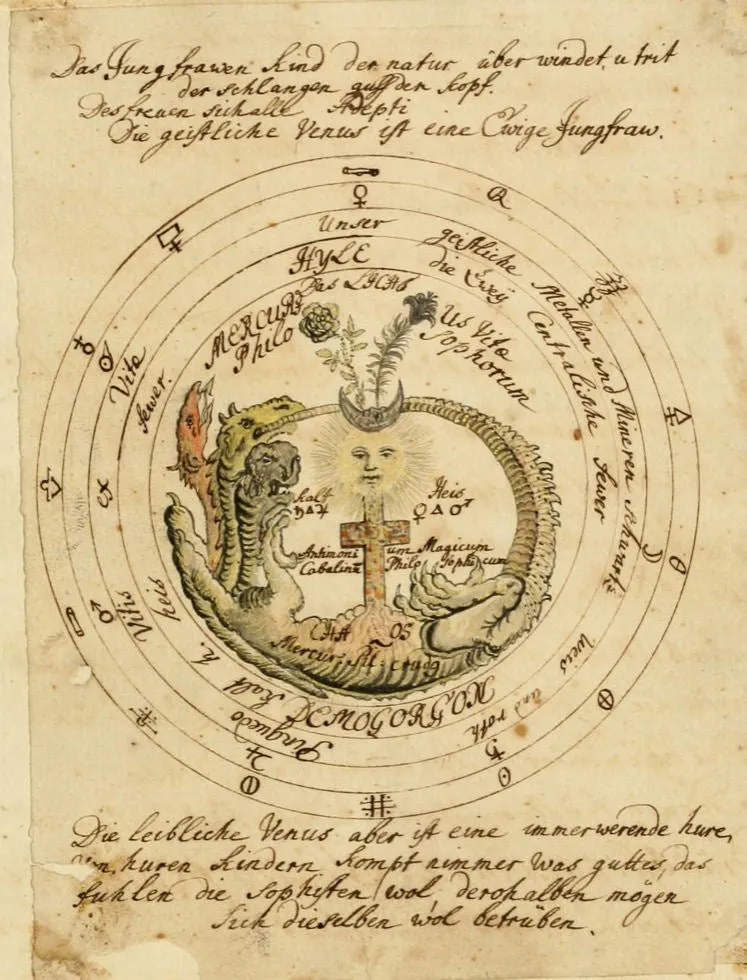 Das Jungfrawen Kind der natur überwindet, u trit
der schlangen auff den kopf.
Des freuen sich alle Adepti
Die geistliche Venus ist eine Ewige Jungfraw.
Unser
HYLE
Das LICHT
geistliche
die Zwey
Metallen und Mineren schwartz
Centralische fewer
MERCURI
Philo
us Vita
Sophorum
Vite
fewer.
Kalt
♄🜁♃
Heis
♀🜂♂
Antimoni um Magicum
Cabalinū Philo Sophicum
CHA OS
Mercur
crudꝫ
Vitis
heis
Pinguedo
Kalt h.
weis
und roth
Die leibliche Venus aber ist eine immerwerende hure,
huren kindern kompt nimmer was guttes, das
fuhlen die Sophisten wol, derohalben mögen
sich dieselben wol betrüben.